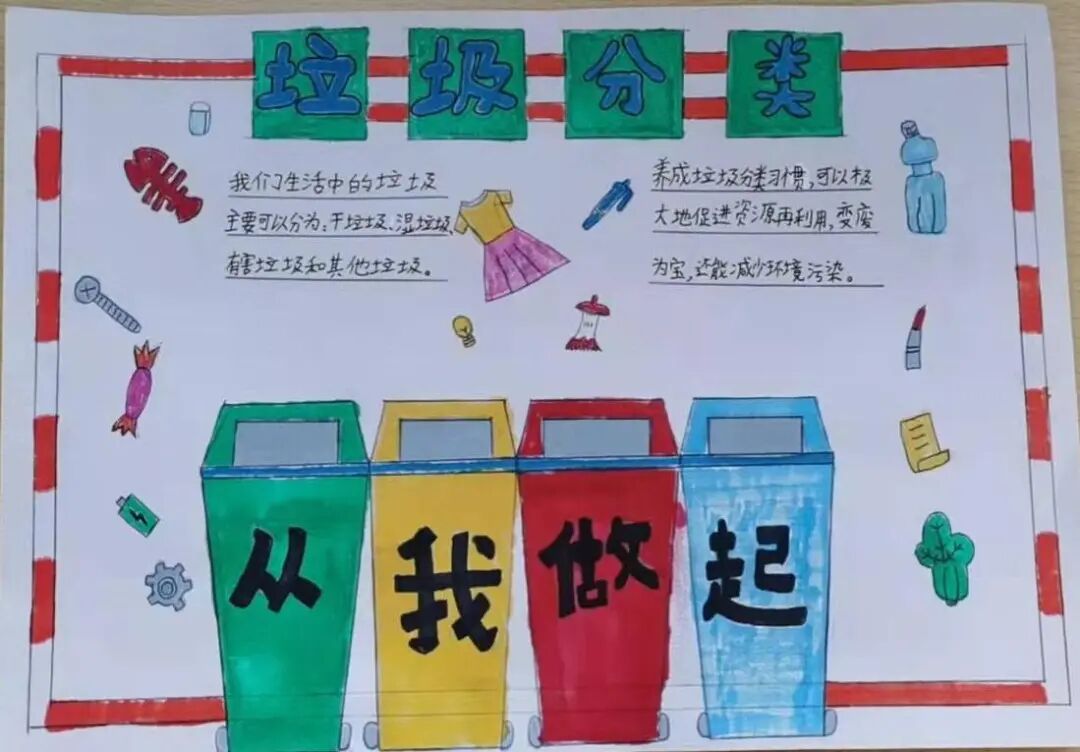 垃圾分类
我们生活中的垃圾
主要可以分为:干垃圾、湿垃圾、
有害垃圾和其他垃圾。
养成垃圾分类习惯,可以极
大地促进资源再利用,变废
为宝,还能减少环境污染。
从我做起